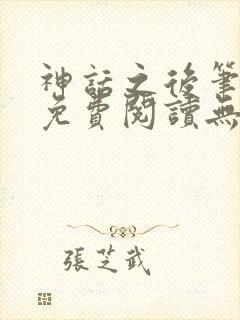 神話之後筆
免費閱讀無
張芝武